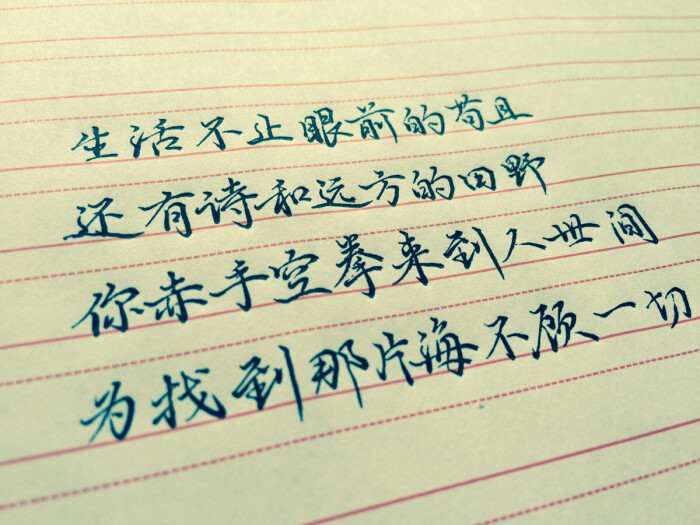 生活不止眼前的苟且
还有诗和远方的田野
你赤手空拳来到人世间
为找到那片海不顾一切